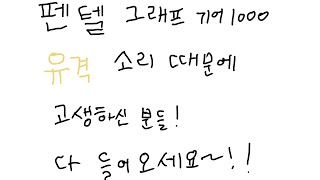 펜텔 그래프 기어1000
유격 소리 때문에
고생하신 분들!
다 들어오세요~!!